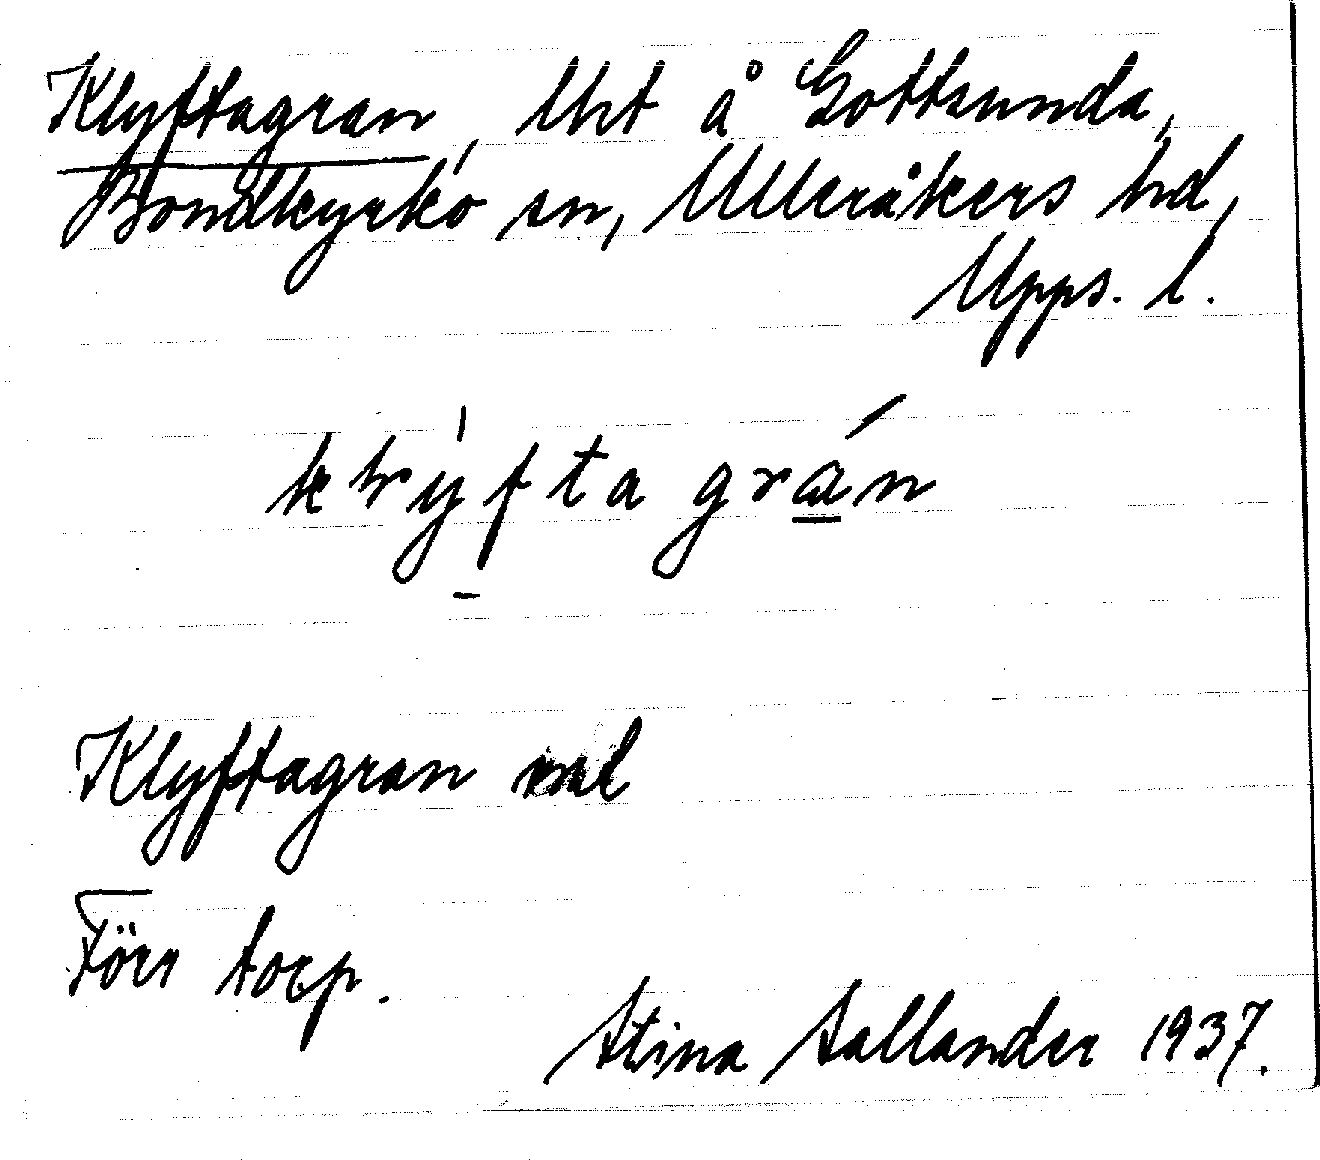 Klyftagran, lht å Gottsunda,
Bondkyrko sn, Ulleråkers hd,
Upps. l.
Klyftagran
Förr torp.
Stina Sallander 1937.